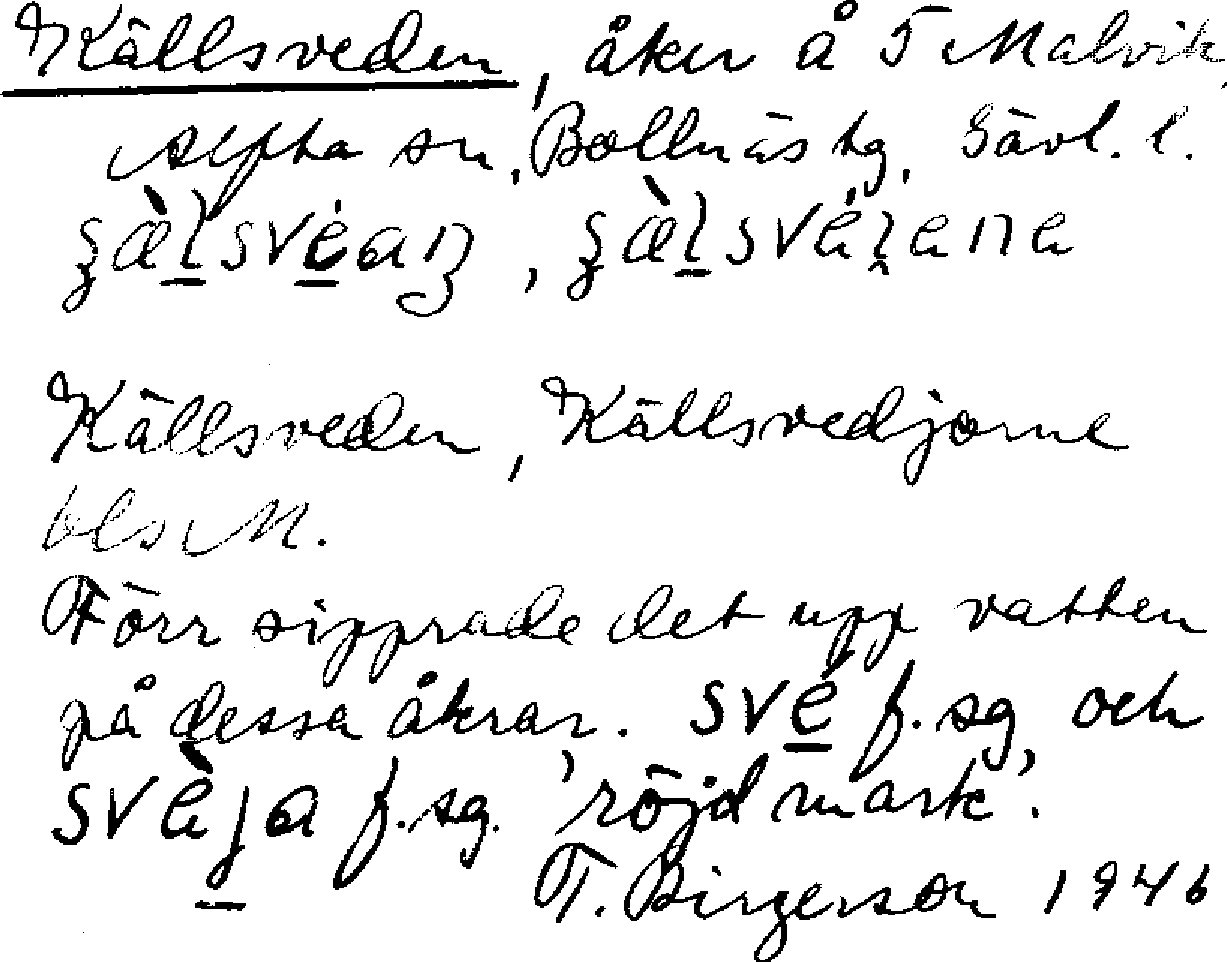 Källsveden, åker å 5 Malvik,
Alfta sn, Bollnäs tg, Gävl. l.
Källsveden, Källsvedjorne
bls M.
Förr sipprade det upp vatten
på dessa åkrar. své f. sg, och
svèja f. sg. 'röjd mark'.
T. Birgerson 1946